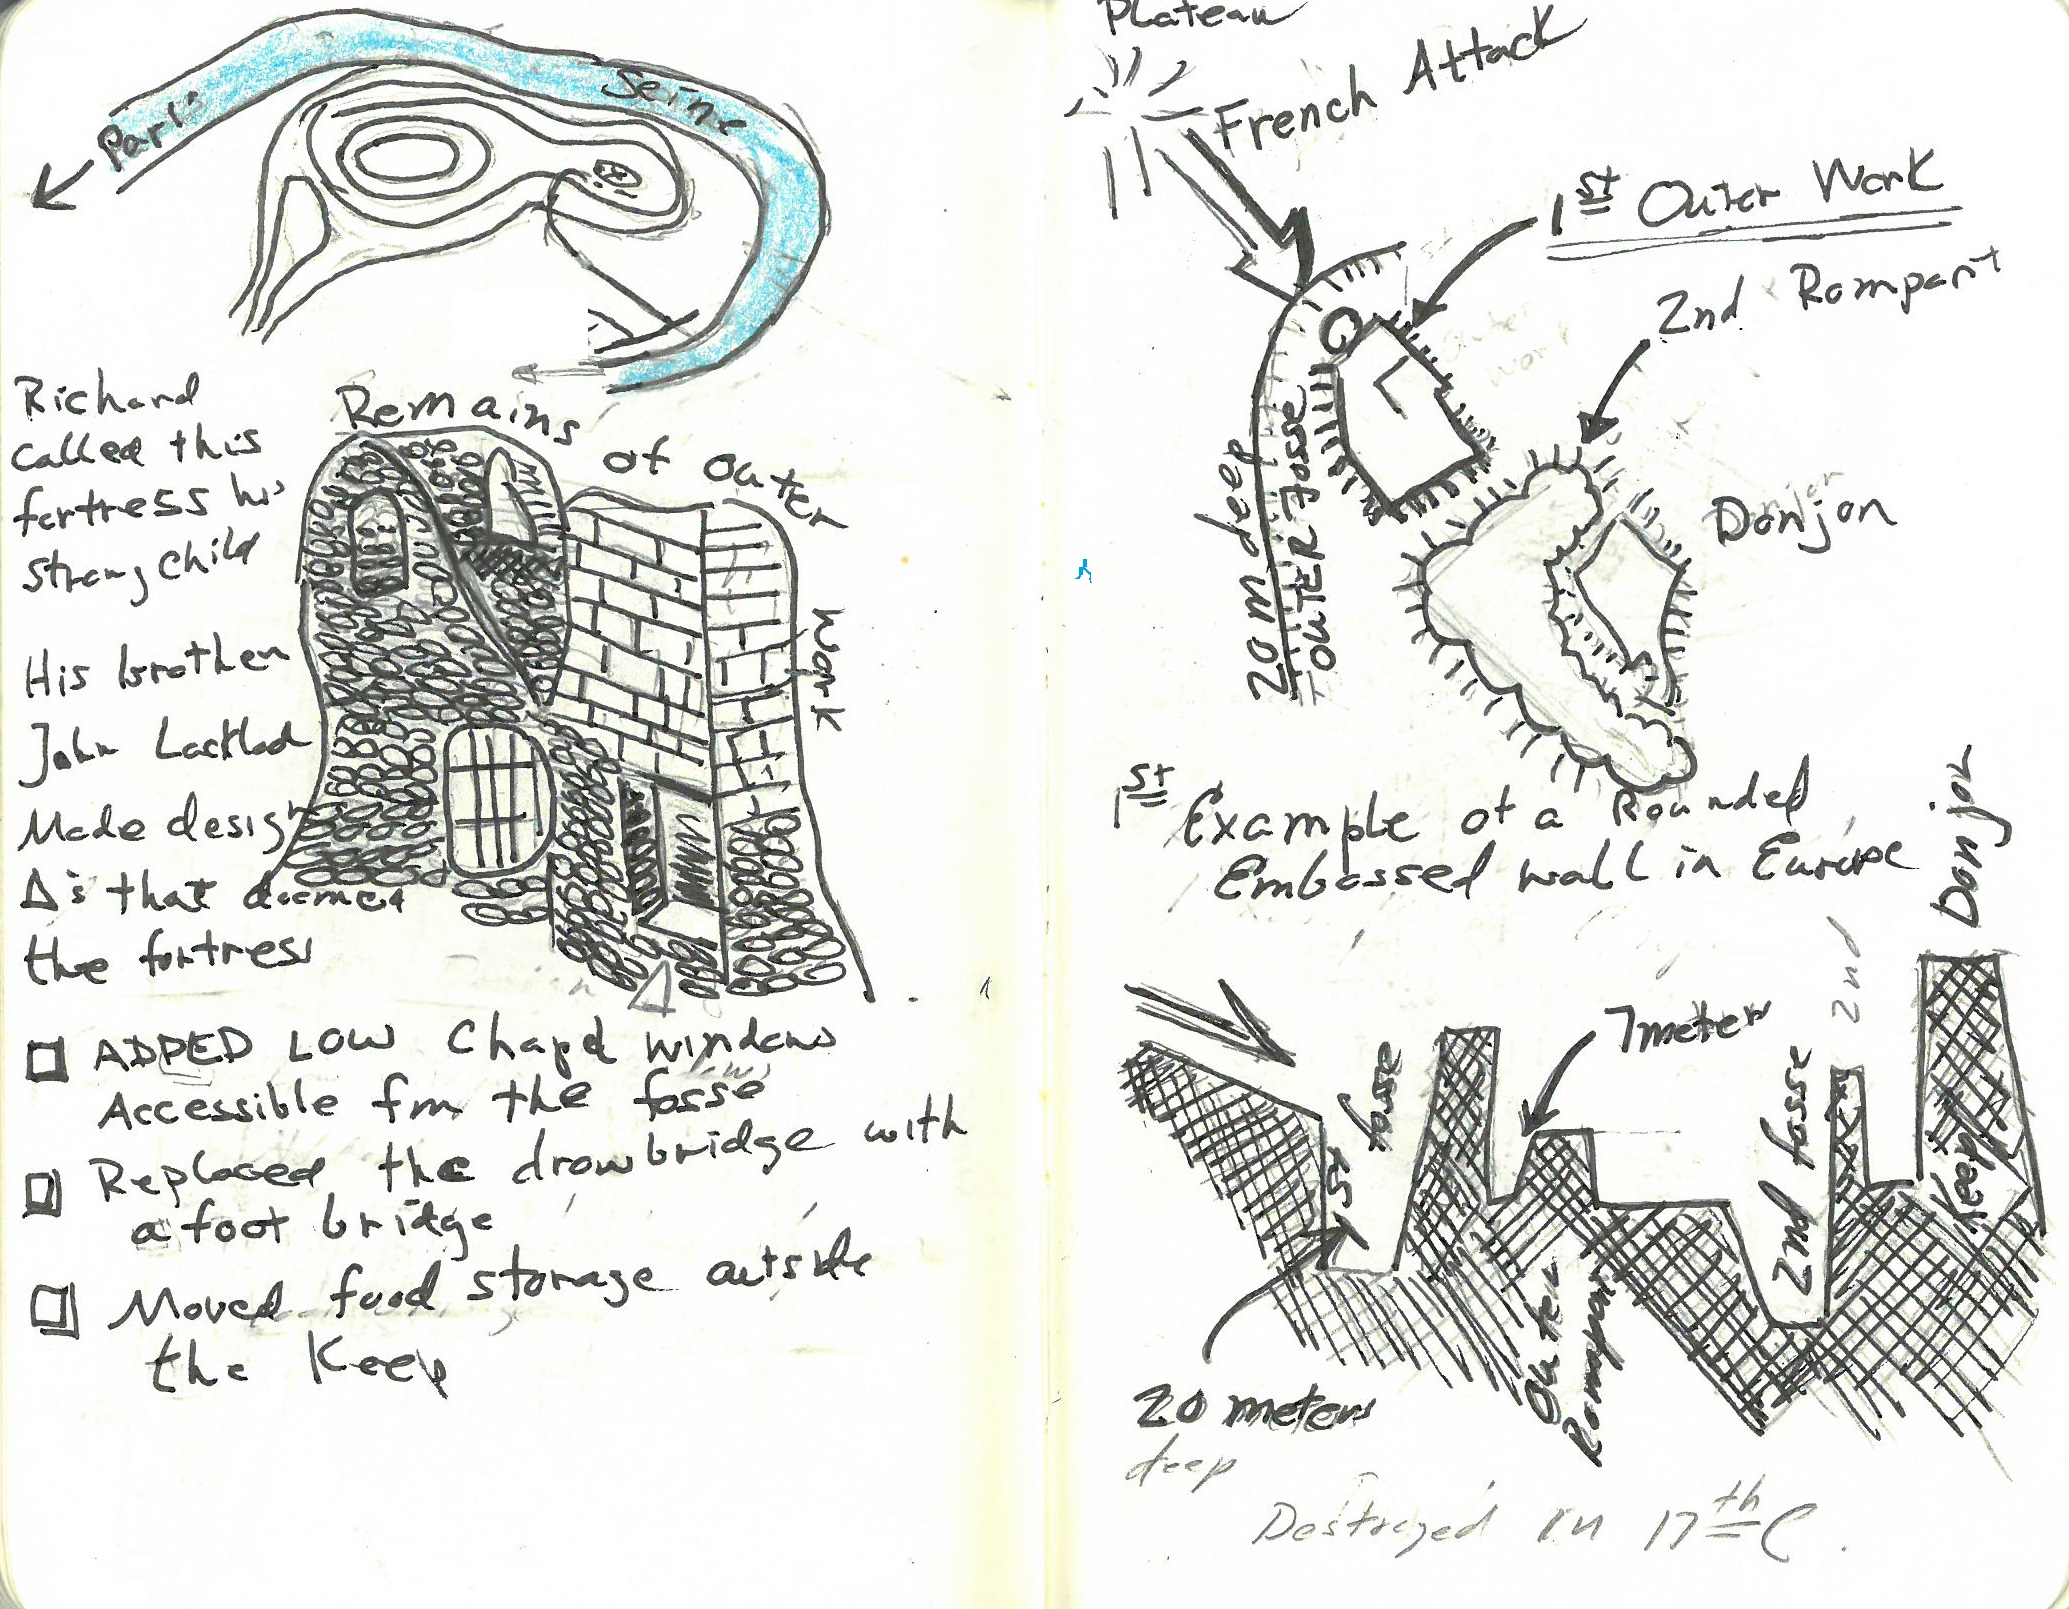 Paris
Seine
Richard
called this
fortress his
strong child
Remains of outer work
His brother
John Lackland
Made design
Δ's that doomed
the fortress
ADDED LOW Chapel windows
Accessible fm the fosse
Replaced the drawbridge with
a foot bridge
Moved food storage outside
the Keep
Plateau
French Attack
1st Outer Work
2nd Rampart
20 m deep
OUTER fosse
Donjon
1st Example of a Rounded
Embossed wall in Europe
Donjon
7 meters
1st fosse
2nd fosse
2nd
Keep
Outer
Rampart
20 meters
deep
Destroyed in 17th C.